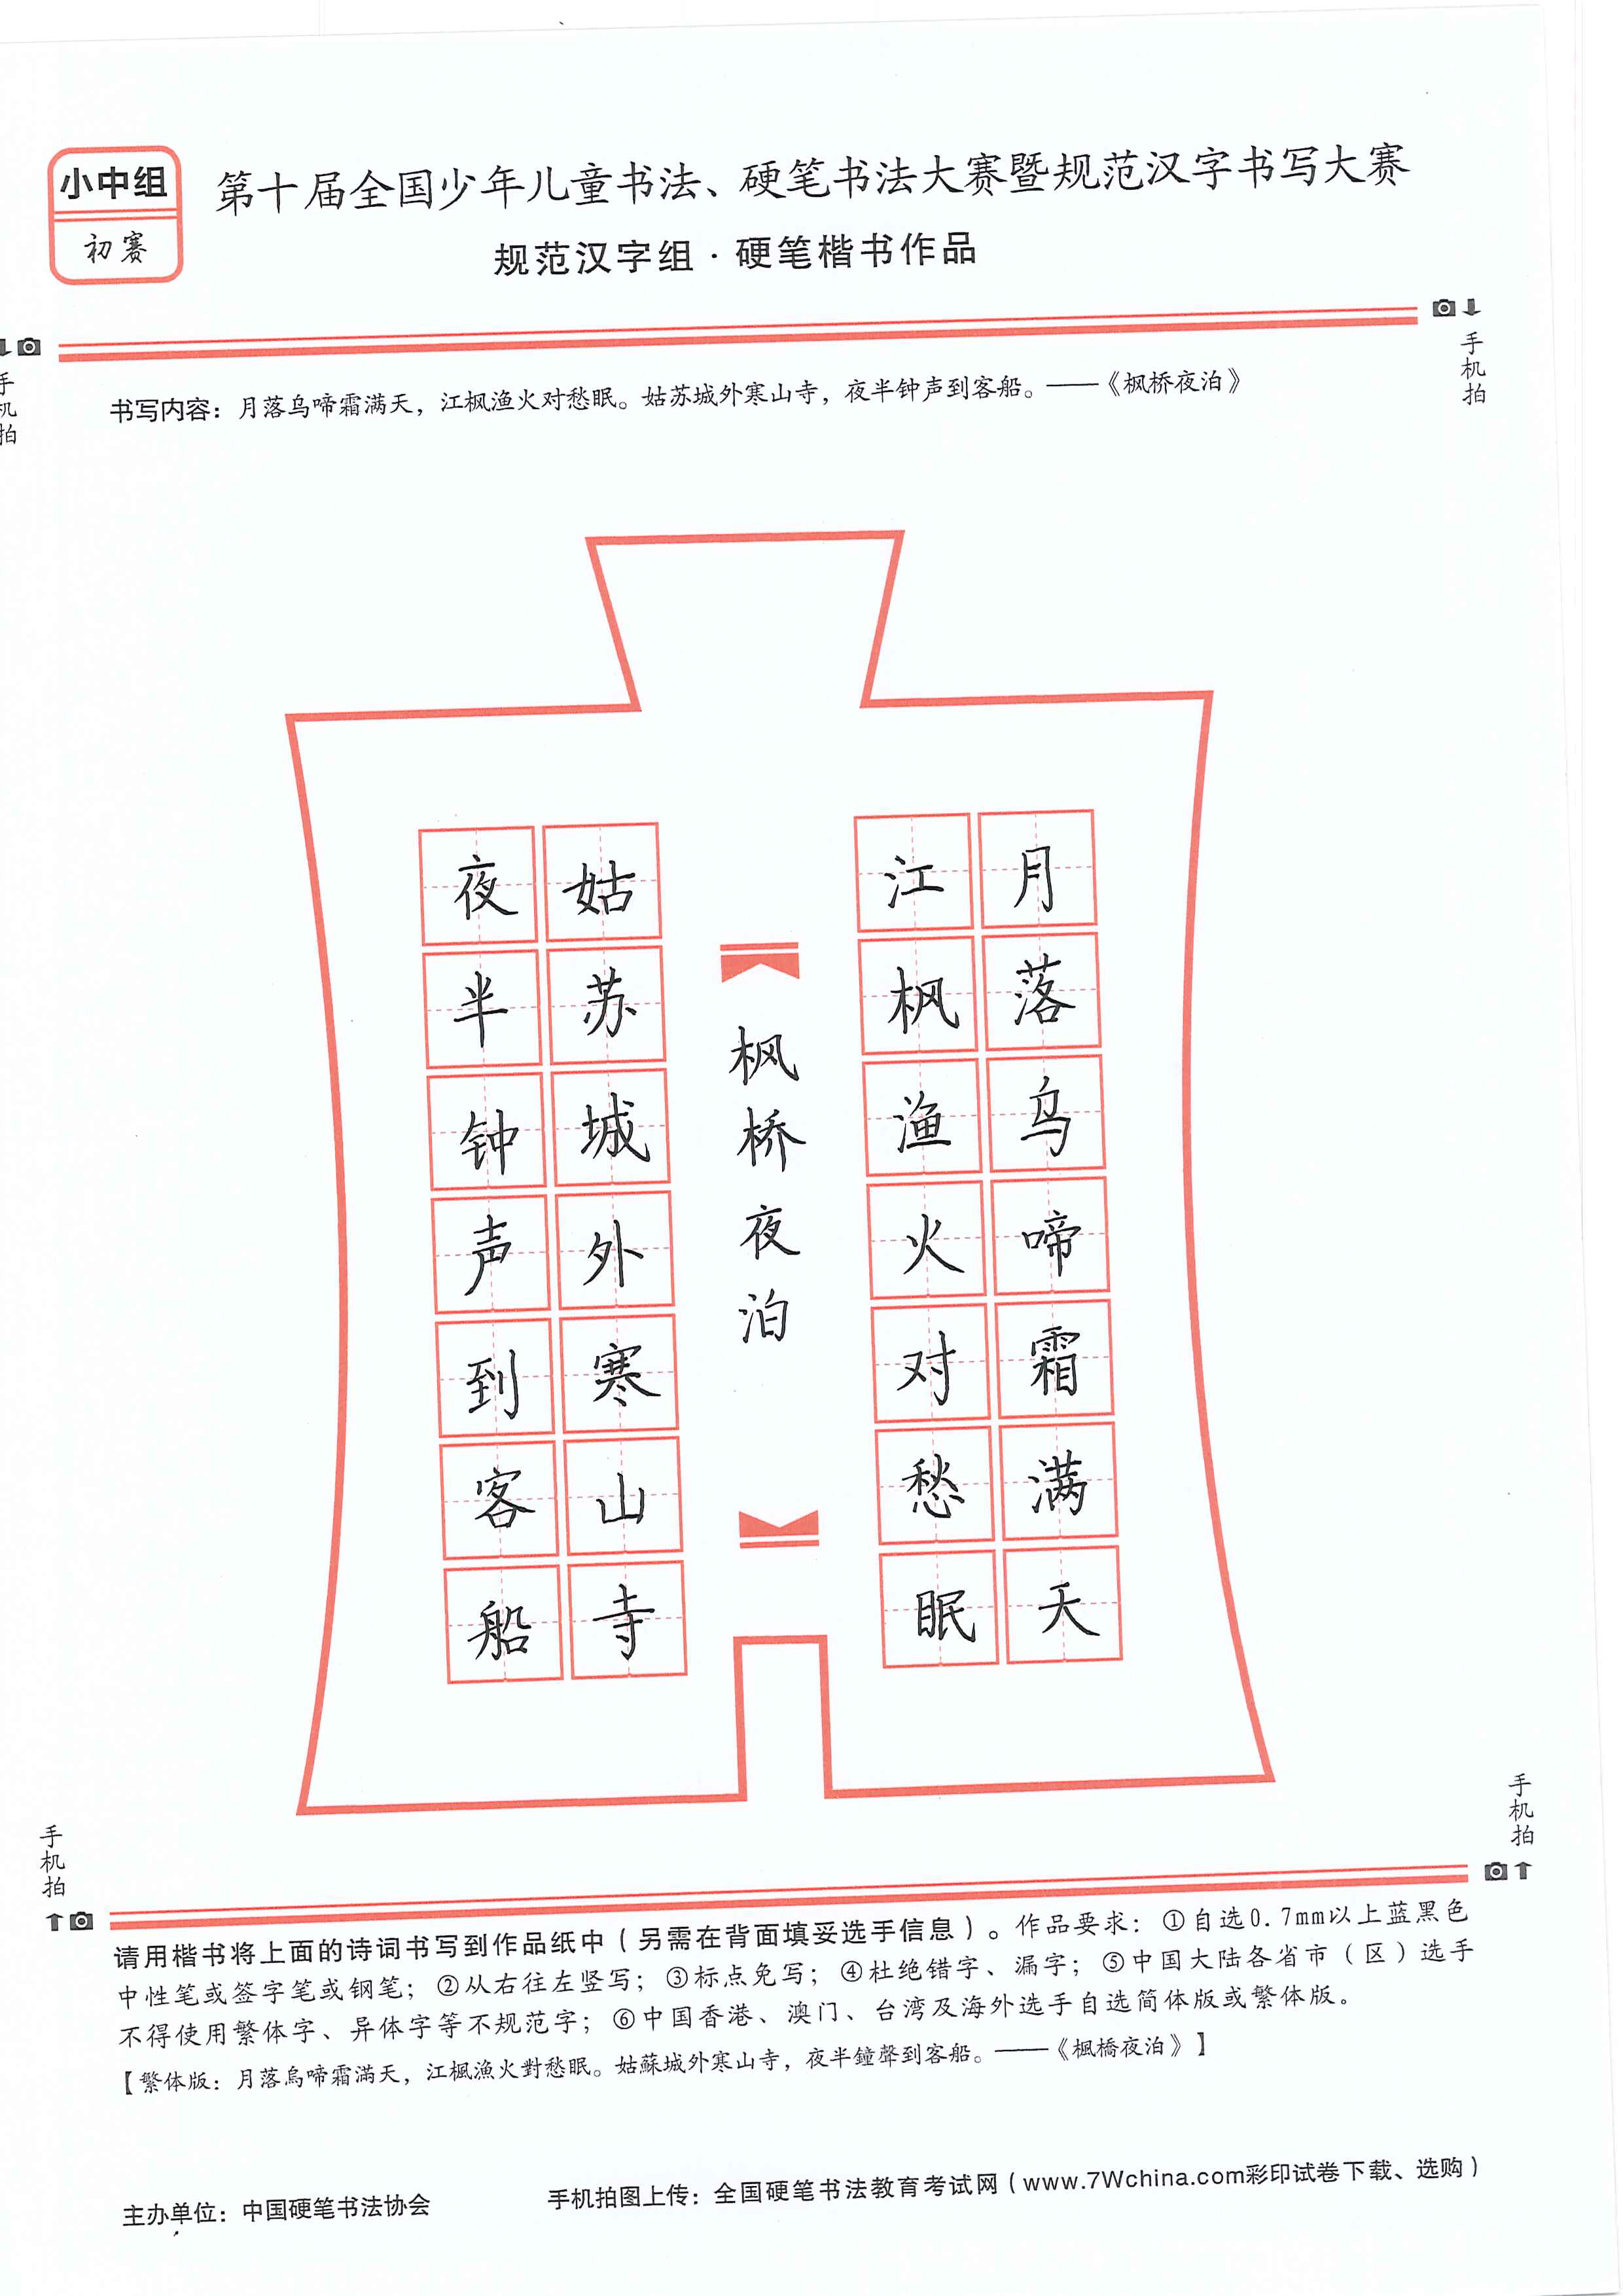 小中组
初赛
第十届全国少年儿童书法、硬笔书法大赛暨规范汉字书写大赛
规范汉字组·硬笔楷书作品
手机拍
手机拍
书写内容：月落乌啼霜满天，江枫渔火对愁眠。姑苏城外寒山寺，夜半钟声到客船。——《枫桥夜泊》
月落乌啼霜满天
江枫渔火对愁眠
枫桥夜泊
姑苏城外寒山寺
夜半钟声到客船
手机拍
手机拍
请用楷书将上面的诗词书写到作品纸中（另需在背面填妥选手信息）。作品要求：①自选0.7mm以上蓝黑色
中性笔或签字笔或钢笔；②从右往左竖写；③标点免写；④杜绝错字、漏字；⑤中国大陆各省市（区）选手
不得使用繁体字、异体字等不规范字；⑥中国香港、澳门、台湾及海外选手自选简体版或繁体版。
【繁体版：月落烏啼霜满天，江楓漁火對愁眠。姑蘇城外寒山寺，夜半鐘聲到客船。——《楓橋夜泊》】
主办单位：中国硬笔书法协会
手机拍图上传：全国硬笔书法教育考试网（www.7Wchina.com彩印试卷下载、选购）